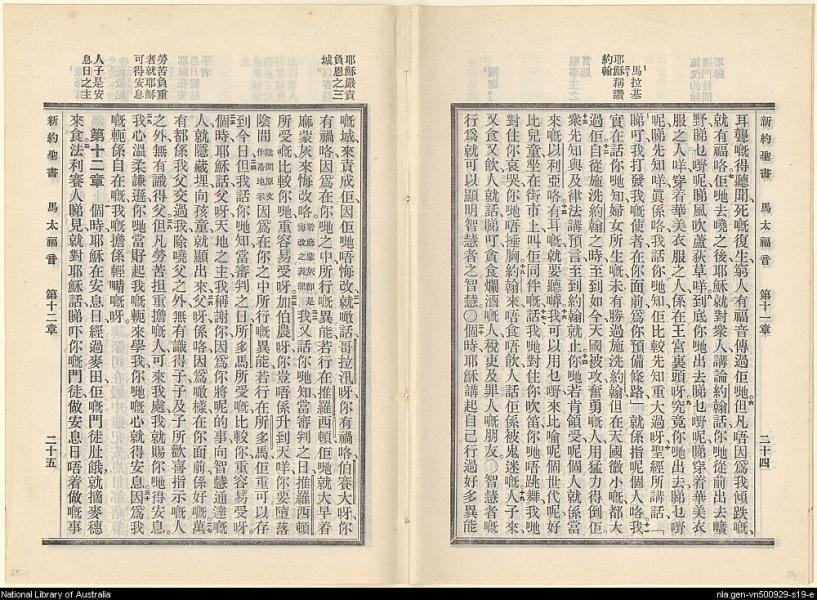 新約聖書 馬太福音 第十一章 二十四
馬拉基
耶穌稱讚
約翰
耳聾嘅得聽聞死嘅復生窮人有福音傳過佢哋但凡唔因爲我傾跌嘅
就有福咯佢哋去嘵之後耶穌就對衆人講論約翰話你哋從前出去曠
野睇乜嘢呢睇風吹蘆荻草咩到底你哋出去睇乜嘢呢睇穿着華美衣
服之人咩穿着華美衣服之人係在王宮裏頭呀究竟你哋出去睇乜嘢
呢睇先知咩眞係咯我話你哋知佢比較先知重大過呀聖經所講話「
睇吖我打發我嘅使者在你面前爲你預備條路」就係指呢個人咯我
實在話你哋知婦女所生嘅未有勝過施洗約翰但在天國微小嘅都大
過佢自從施洗約翰之時至到如今天國被攻奮勇嘅人用猛力得倒佢
衆先知與及律法講預言至到約翰就止你哋若肯領受呢個人就係當
來以利亞咯有耳嘅就要聽嘑我可以用乜嘢來比喩呢個世代呢好
比兒童坐在街市上叫佢同伴嘅話我哋對住你吹笛你哋唔跳舞我哋
對住你哀哭你哋唔搥胸約翰來唔食唔飲人話佢係被鬼迷嘅人子來
又食又飲人就話睇吖貪食爛酒嘅人稅吏及罪人嘅朋友智慧者嘅
行爲就可以顯明智慧者之智慧〇個時耶穌講起自己行過好多異能
耶穌嚴責
負恩之三
城
嘅城來責成佢因佢哋唔悔改就噉話哥拉汛呀你有禍咯伯賽大呀你
有禍咯因爲在你哋之中所行嘅異能若行在推羅西頓佢哋就大早着
麻蒙灰來悔改咯我又話你哋知當審判之日推羅西頓
所受嘅比較你哋重容易受呀加伯農呀你豈唔係升到天咩你要墮落
陰間陰間原文作落地示因爲在你之中所行嘅異能若行在所多馬佢重可以存
到今日但我話你哋知當審判之日所多馬所受嘅比較你重容易受呀
個時耶穌話父呀天地之主我稱謝你因爲你將呢的事向智慧通達嘅
人就隱藏埋向孩童就顯出來父呀係咯因爲噉樣在你面前係好嘅萬
有都係我父交過我除嘵父之外無有識得子子及子所歡喜指示嘅人
之外無有識得父但凡勞苦担重擔嘅人可來我處我就賜你哋得安息
我心溫柔謙遜你哋當好起我嘅軛來學我你哋嘅心就得安息因爲我
嘅軛係自在嘅我嘅擔係輕嘅呀
勞苦負重
者就耶穌
可得安息
人子是安
息日之主
第十二章 個時耶穌在安息日經過麥田佢嘅門徒肚餓就摘麥穗
來食法利賽人睇見就對耶穌話睇吓你嘅門徒做安息日唔着做嘅事
新約聖書 馬太福音 第十二章 二十五
National Library of Australia
nla.gen-vn500929-s19-e